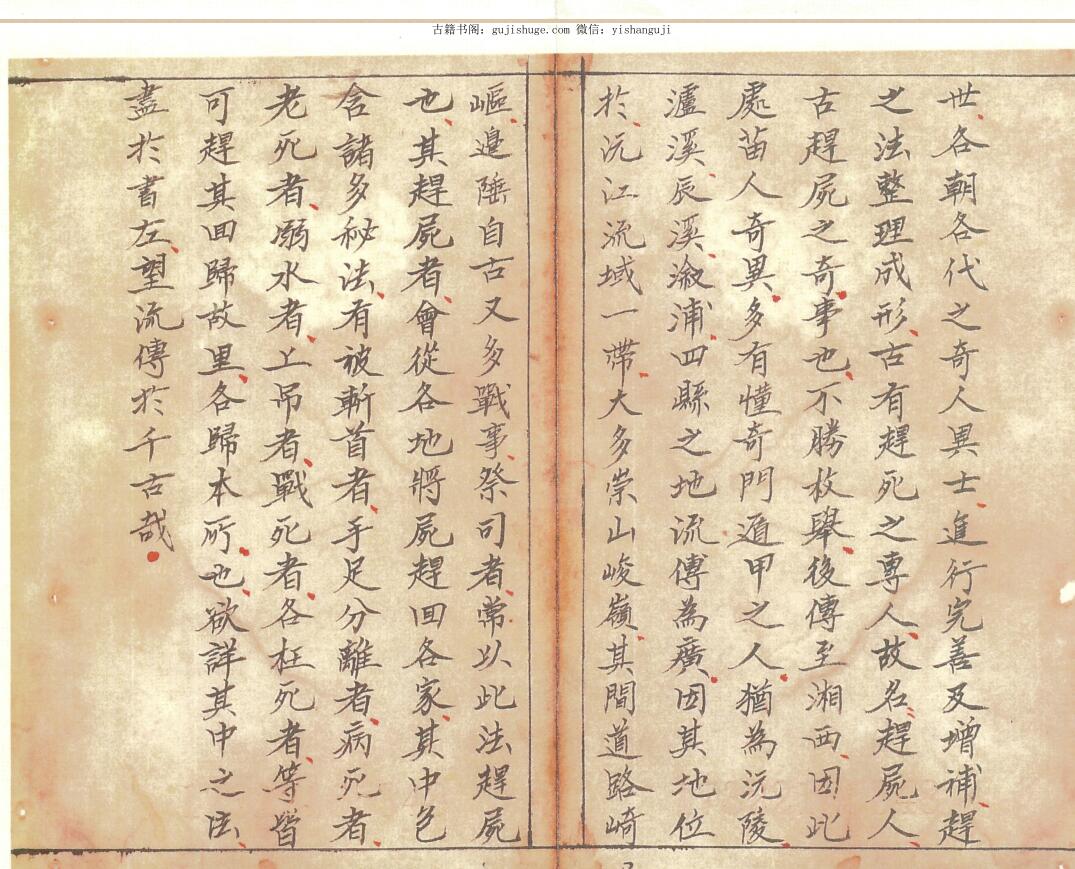 古籍书阁：gujishuge.com 微信：yishanguji
世各朝各代之奇人異士進行完善及增補趕
之法整理成形古有趕死之專人故名趕屍人
古趕屍之奇事也不勝枚舉後傳至湘西因此
處苗人奇異多有懂奇門遁甲之人猶為沅陵
瀘溪辰溪溆浦四縣之地流傳為廣因其地位
於沅江流域一帶大多崇山峻嶺其間道路崎
嶇邊陲自古又多戰事祭司者常以此法趕屍
也其趕屍者會從各地將屍趕回各家其中色
含諸多秘法有被斬首者手足分離者病死者
老死者溺水者上吊者戰死者各枉死者等皆
可趕其回歸故里各歸本所也欲詳其中之法
盡於書左望流傳於千古哉